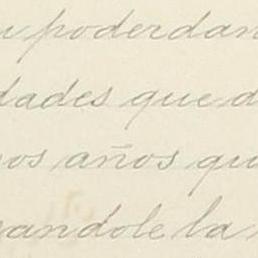 u poderdan
dades que d
nos años qu
randole la